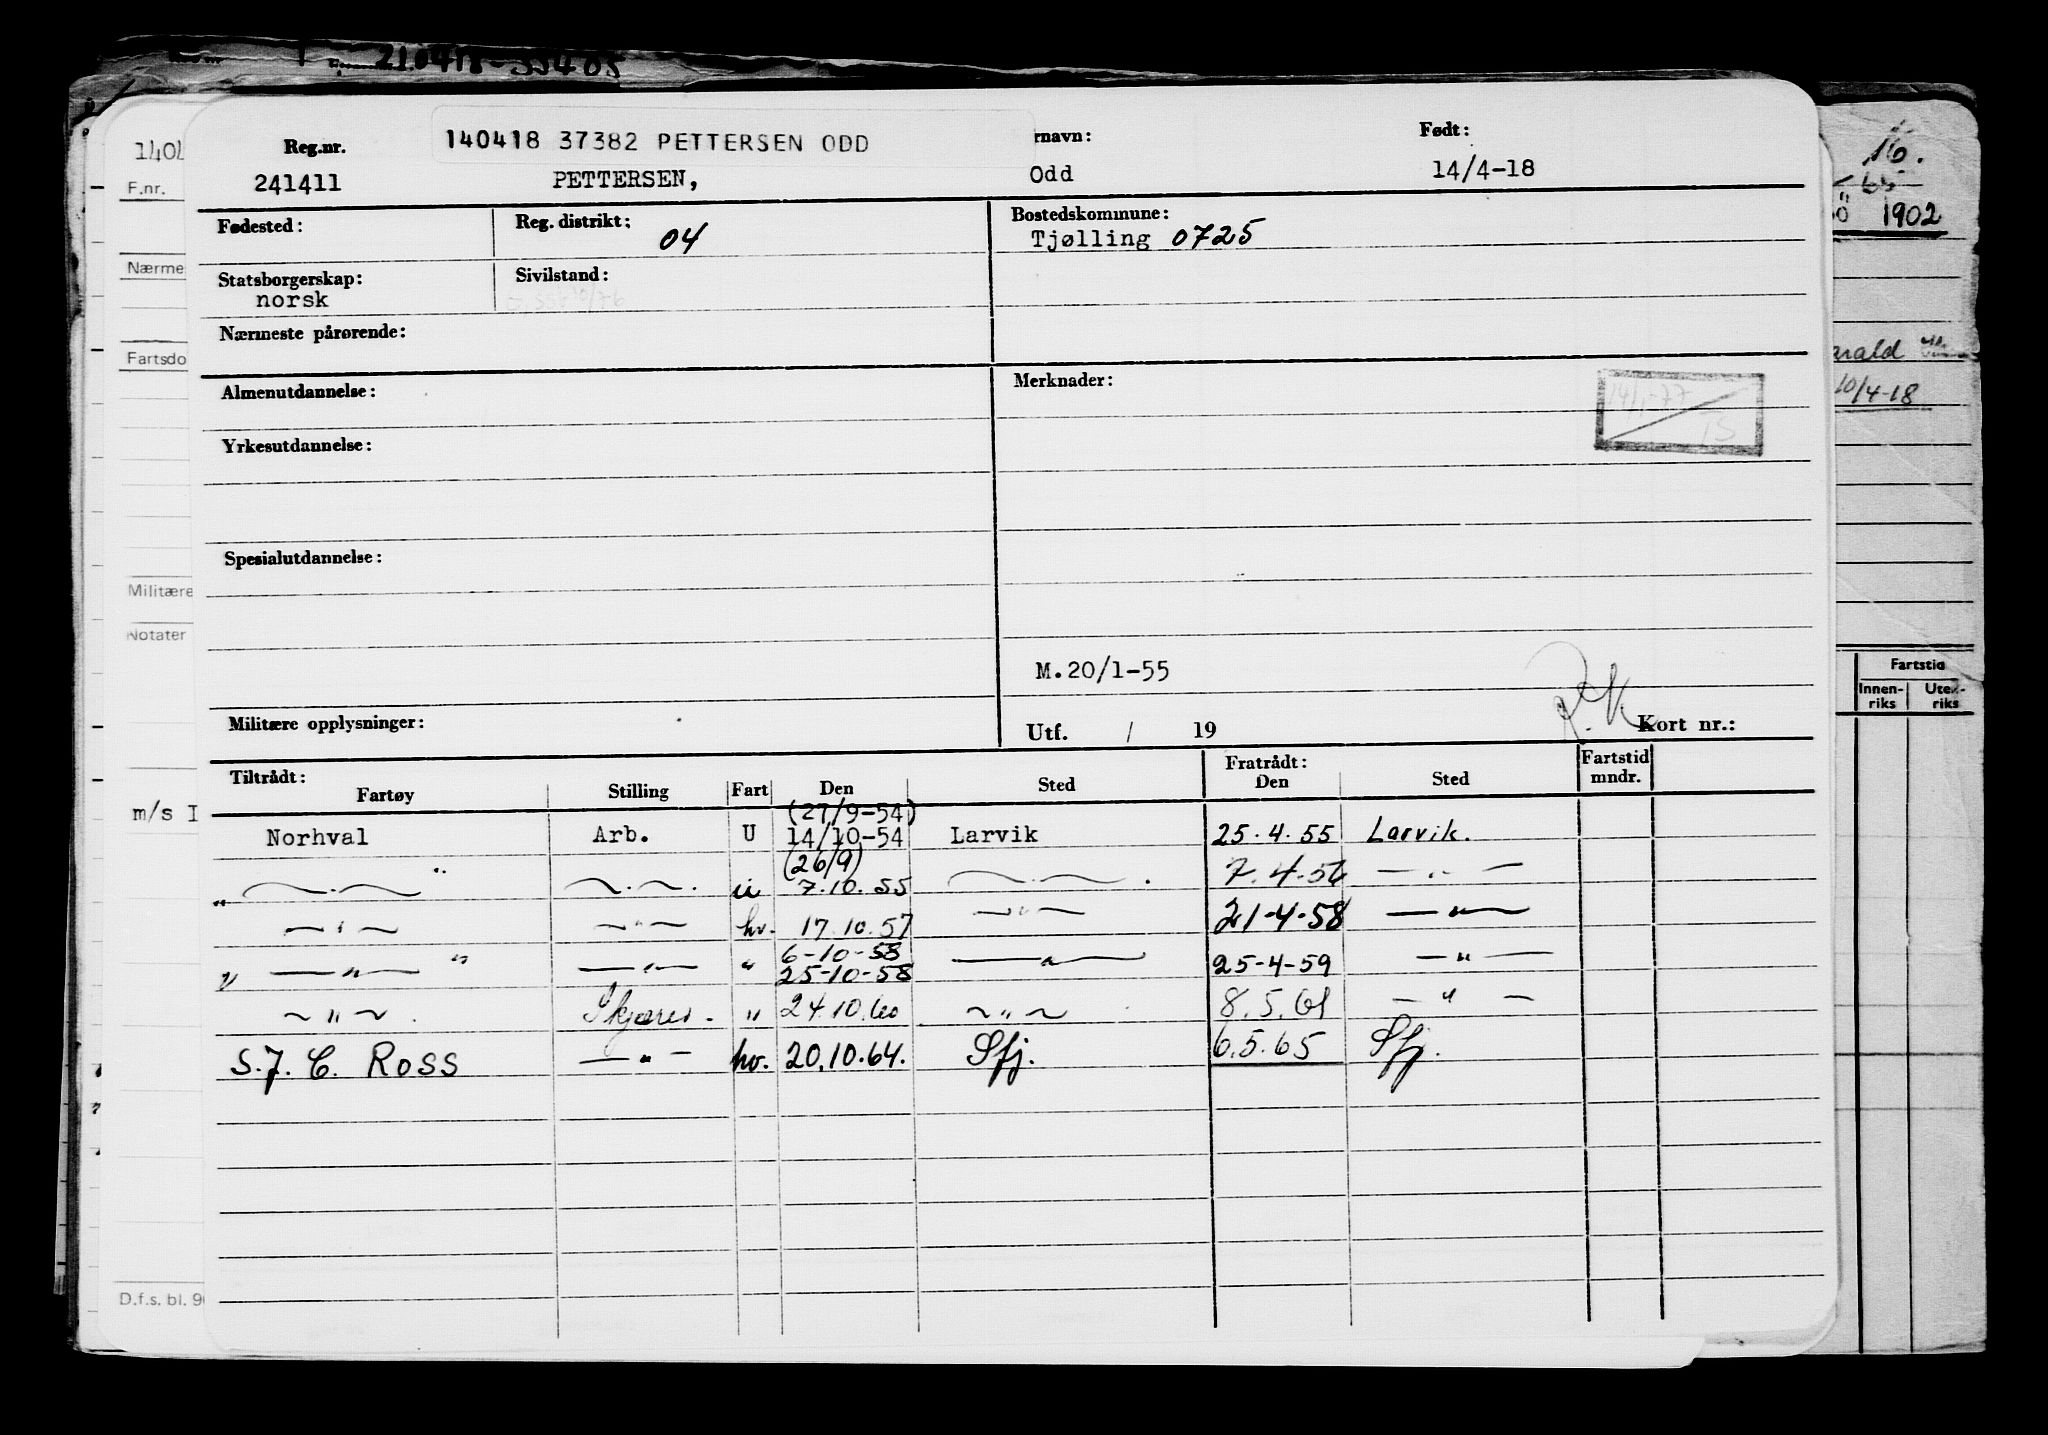 21.0418-35405
140418 37382 PETTERSEN ODD
Reg.nr. rnavn: Født:
241411 PETTERSEN, Odd 14/4-18
Fødested: Reg. distrikt: 04 Bostedskommune:
Tjølling 0725
Statsborgerskap: Sivilstand:
norsk
Nærmeste pårørende:
Almenutdannelse: Merknader:
14/1-77
15
Yrkesutdannelse:
Spesialutdannelse:
M.20/1-55
Militære opplysninger: Utf. / 19 Kort nr.:
Tiltrådt: Fratrådt: Fartstid
Fartøy Stilling Fart Den Sted Den Sted mndr.
(27/9-54)
Norhval Arb. U 14/10-54 Larvik 25.4.55 Larvik.
(26/9)
" — . — " — . — . ü 7.10.55 — . — . 7.4.56 — " —
— " — — " — hv. 17.10.57 — " — 21-4-58 — " —
6-10-58
— " — " — " — " 25-10-58 — " — 25-4-59 — " —
— " — . Skjærer. " 24.10.60 — " — 8.5.61 — " —
S.J. C. Ross — " — hv. 20.10.64. Sfj. 6.5.65 Sfj.
140
F.nr.
Nærme
Fartsdo
Militære
Notater
m/s I
D.f.s. bl. 9
16.
1902
arald
10/4-18
Fartstid
Innen- Uten-
riks riks